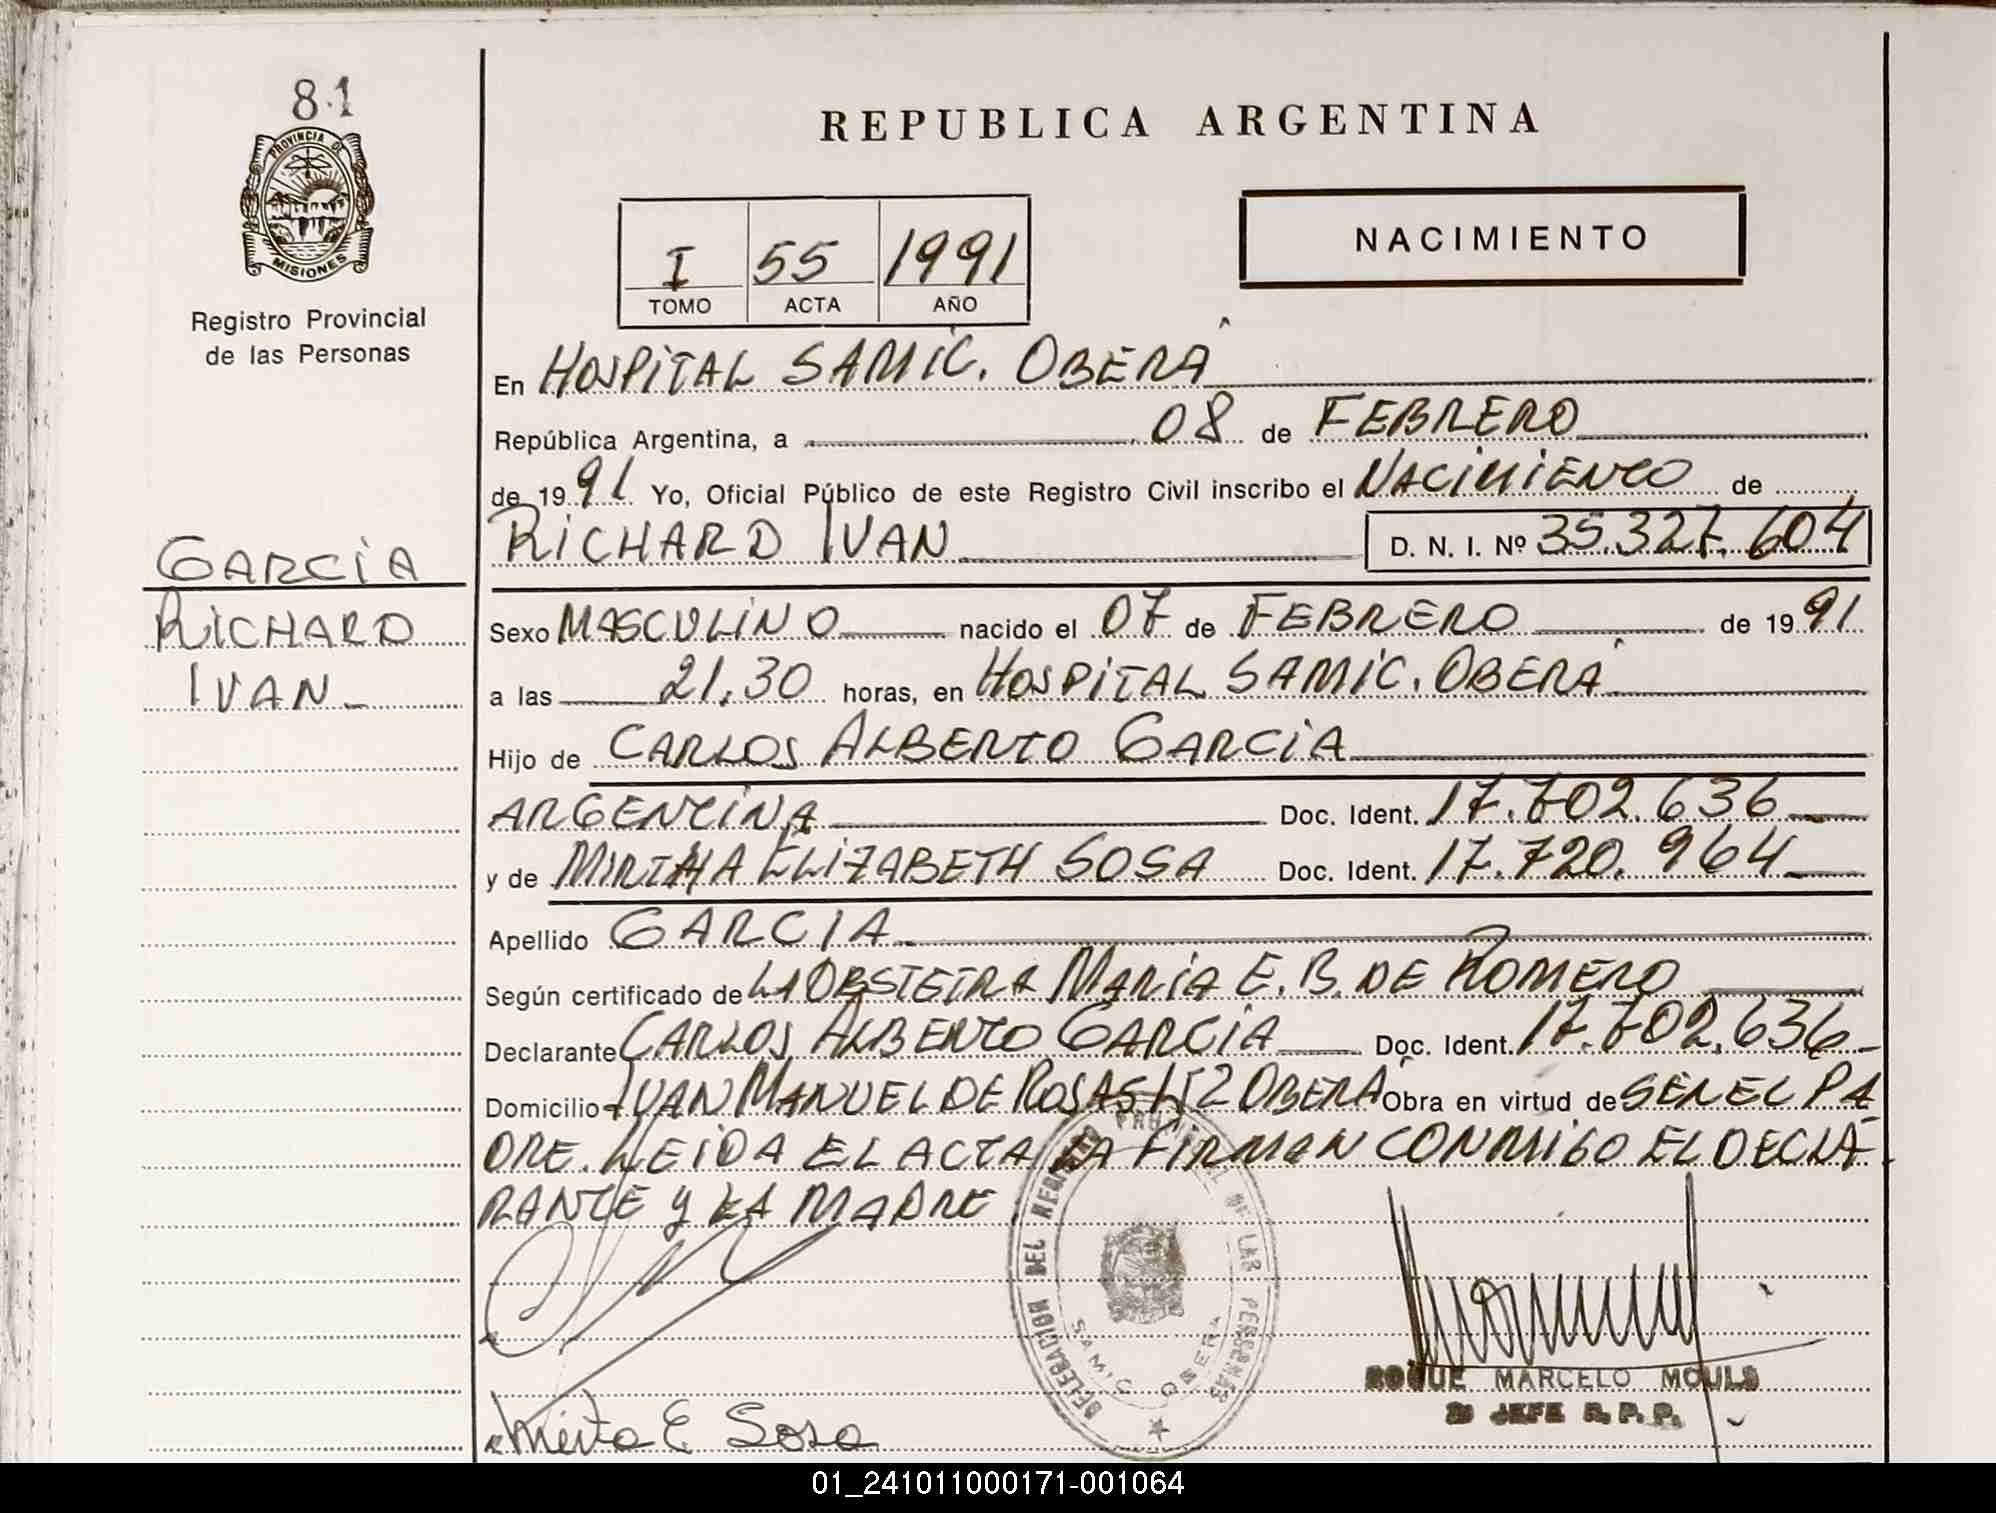 81
PROVINCIA DE
MISIONES
Registro Provincial
de las Personas
GARCIA
RICHARD
IVAN
REPUBLICA ARGENTINA
I 55 1991
TOMO ACTA AÑO
NACIMIENTO
En HOSPITAL SAMIC. OBERÁ
República Argentina, a 08 de FEBRERO
de 1991 Yo, Oficial Público de este Registro Civil inscribo el NACIMIENTO de
RICHARD IVAN D. N. I. Nº 35.327.604
Sexo MASCULINO nacido el 07 de FEBRERO de 1991
a las 21.30 horas, en HOSPITAL SAMIC. OBERÁ
Hijo de CARLOS ALBERTO GARCIA
ARGENTINA Doc. Ident. 17.702.636
y de MIRTHA ELIZABETH SOSA Doc. Ident. 17.720.964
Apellido GARCIA
Según certificado de LA OBSTETRA MARIA E. B. DE ROMERO
Declarante CARLOS ALBERTO GARCIA Doc. Ident. 17.702.636
Domicilio JUAN MANUEL DE ROSAS OBERÁ Obra en virtud de SER EL PA
DRE. LEIDA EL ACTA LA FIRMAN CONMIGO EL DECLA-
RANTE Y LA MADRE.
DELEGACION DEL REGISTRO PROVINCIAL DE LAS PERSONAS
SAMIC OBERA
Mirta E Sosa
ROQUE MARCELO MOULS
JEFE R. P. P.
01_241011000171-001064